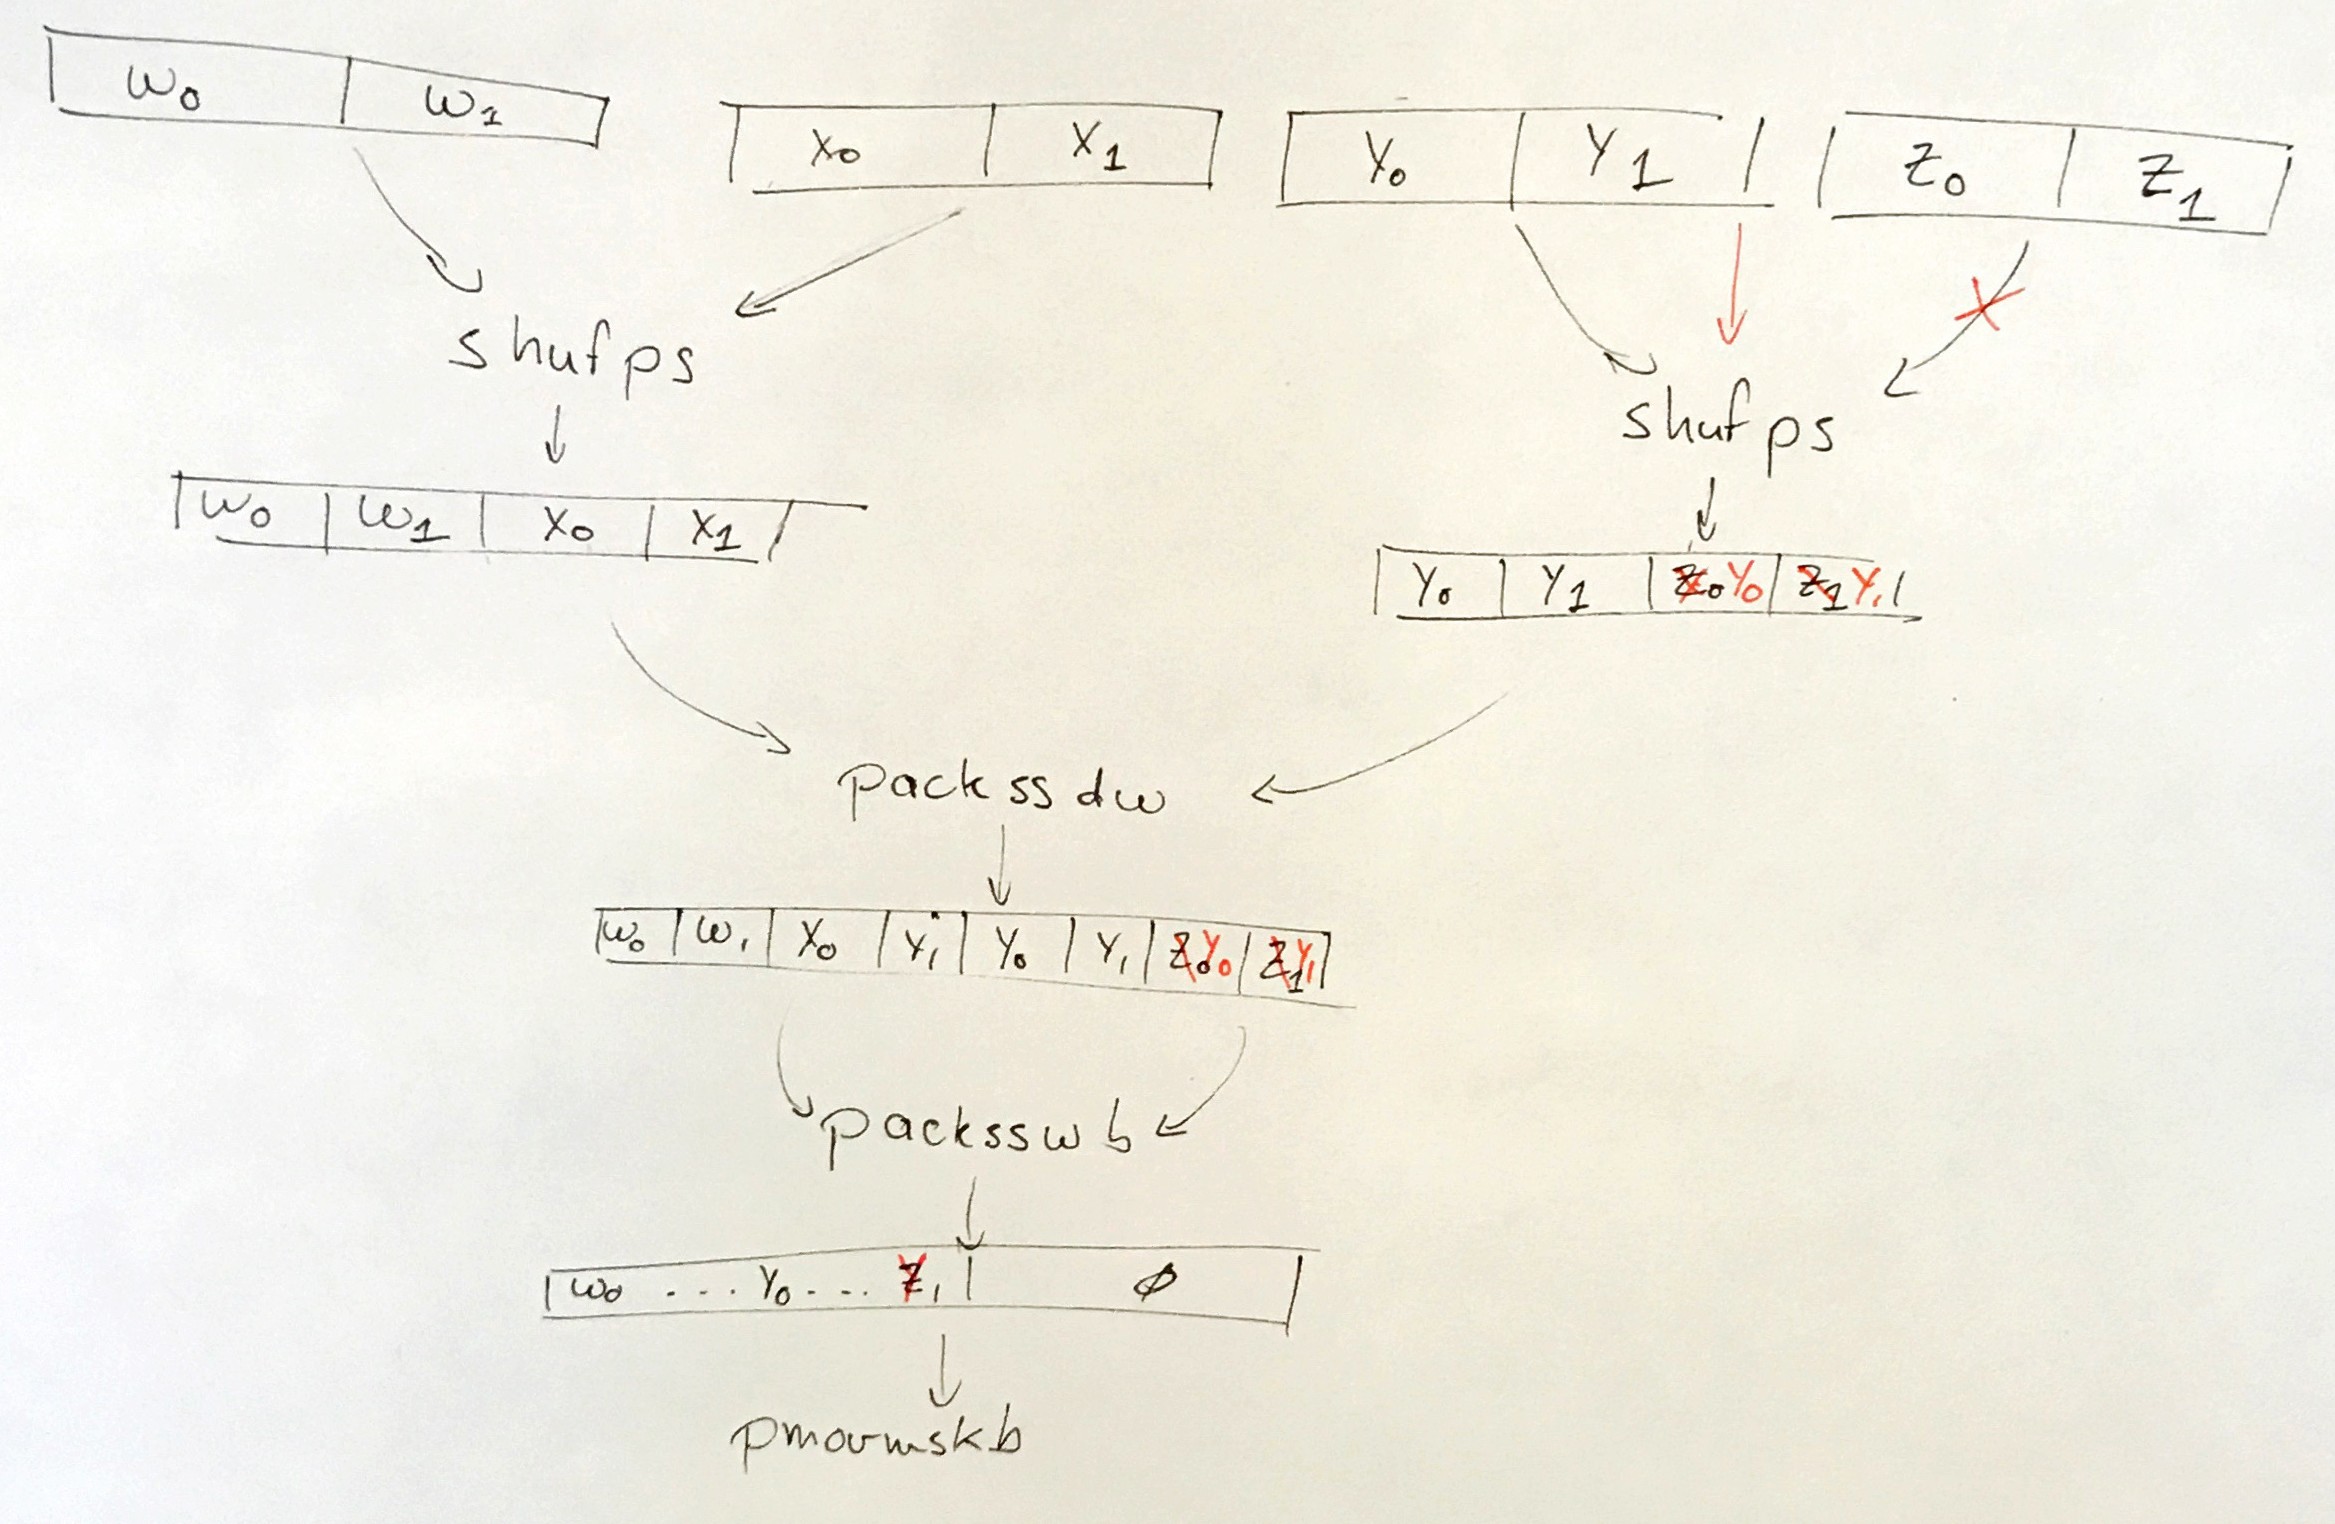 W0 W1
X0 X1
Y0 Y1
Z0 Z1
shufps
shufps
W0 W1 X0 X1
Y0 Y1 Z0 Y0 Z1 Y1
packssdw
W0 W1 X0 Y1 Y0 Y1 Z0 Y0 Z1 Y1
packsswb
W0 ... Y0 ... Z1 Ø
pmovmskb